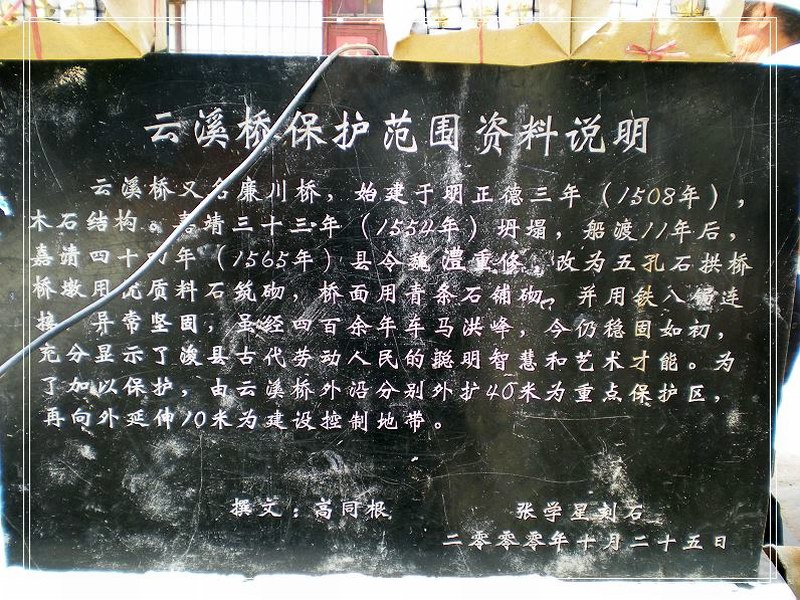 云溪桥保护范围资料说明
云溪桥又名廉川桥，始建于明正德三年（1508年），
木石结构。嘉靖三十三年（1554年）坍塌，船渡11年后，
嘉靖四十四年（1565年）县令魏澧重修，改为五孔石拱桥
桥墩用优质料石筑砌，桥面用青条石铺砌。并用铁八锔连
接 异常坚固，虽经四百余年车马洪峰，今仍稳固如初，
充分显示了浚县古代劳动人民的聪明智慧和艺术才能。为
了加以保护，由云溪桥外沿分别外扩40米为重点保护区，
再向外延伸10米为建设控制地带。
撰文：高同根 张学星刻石
二零零零年十月二十五日